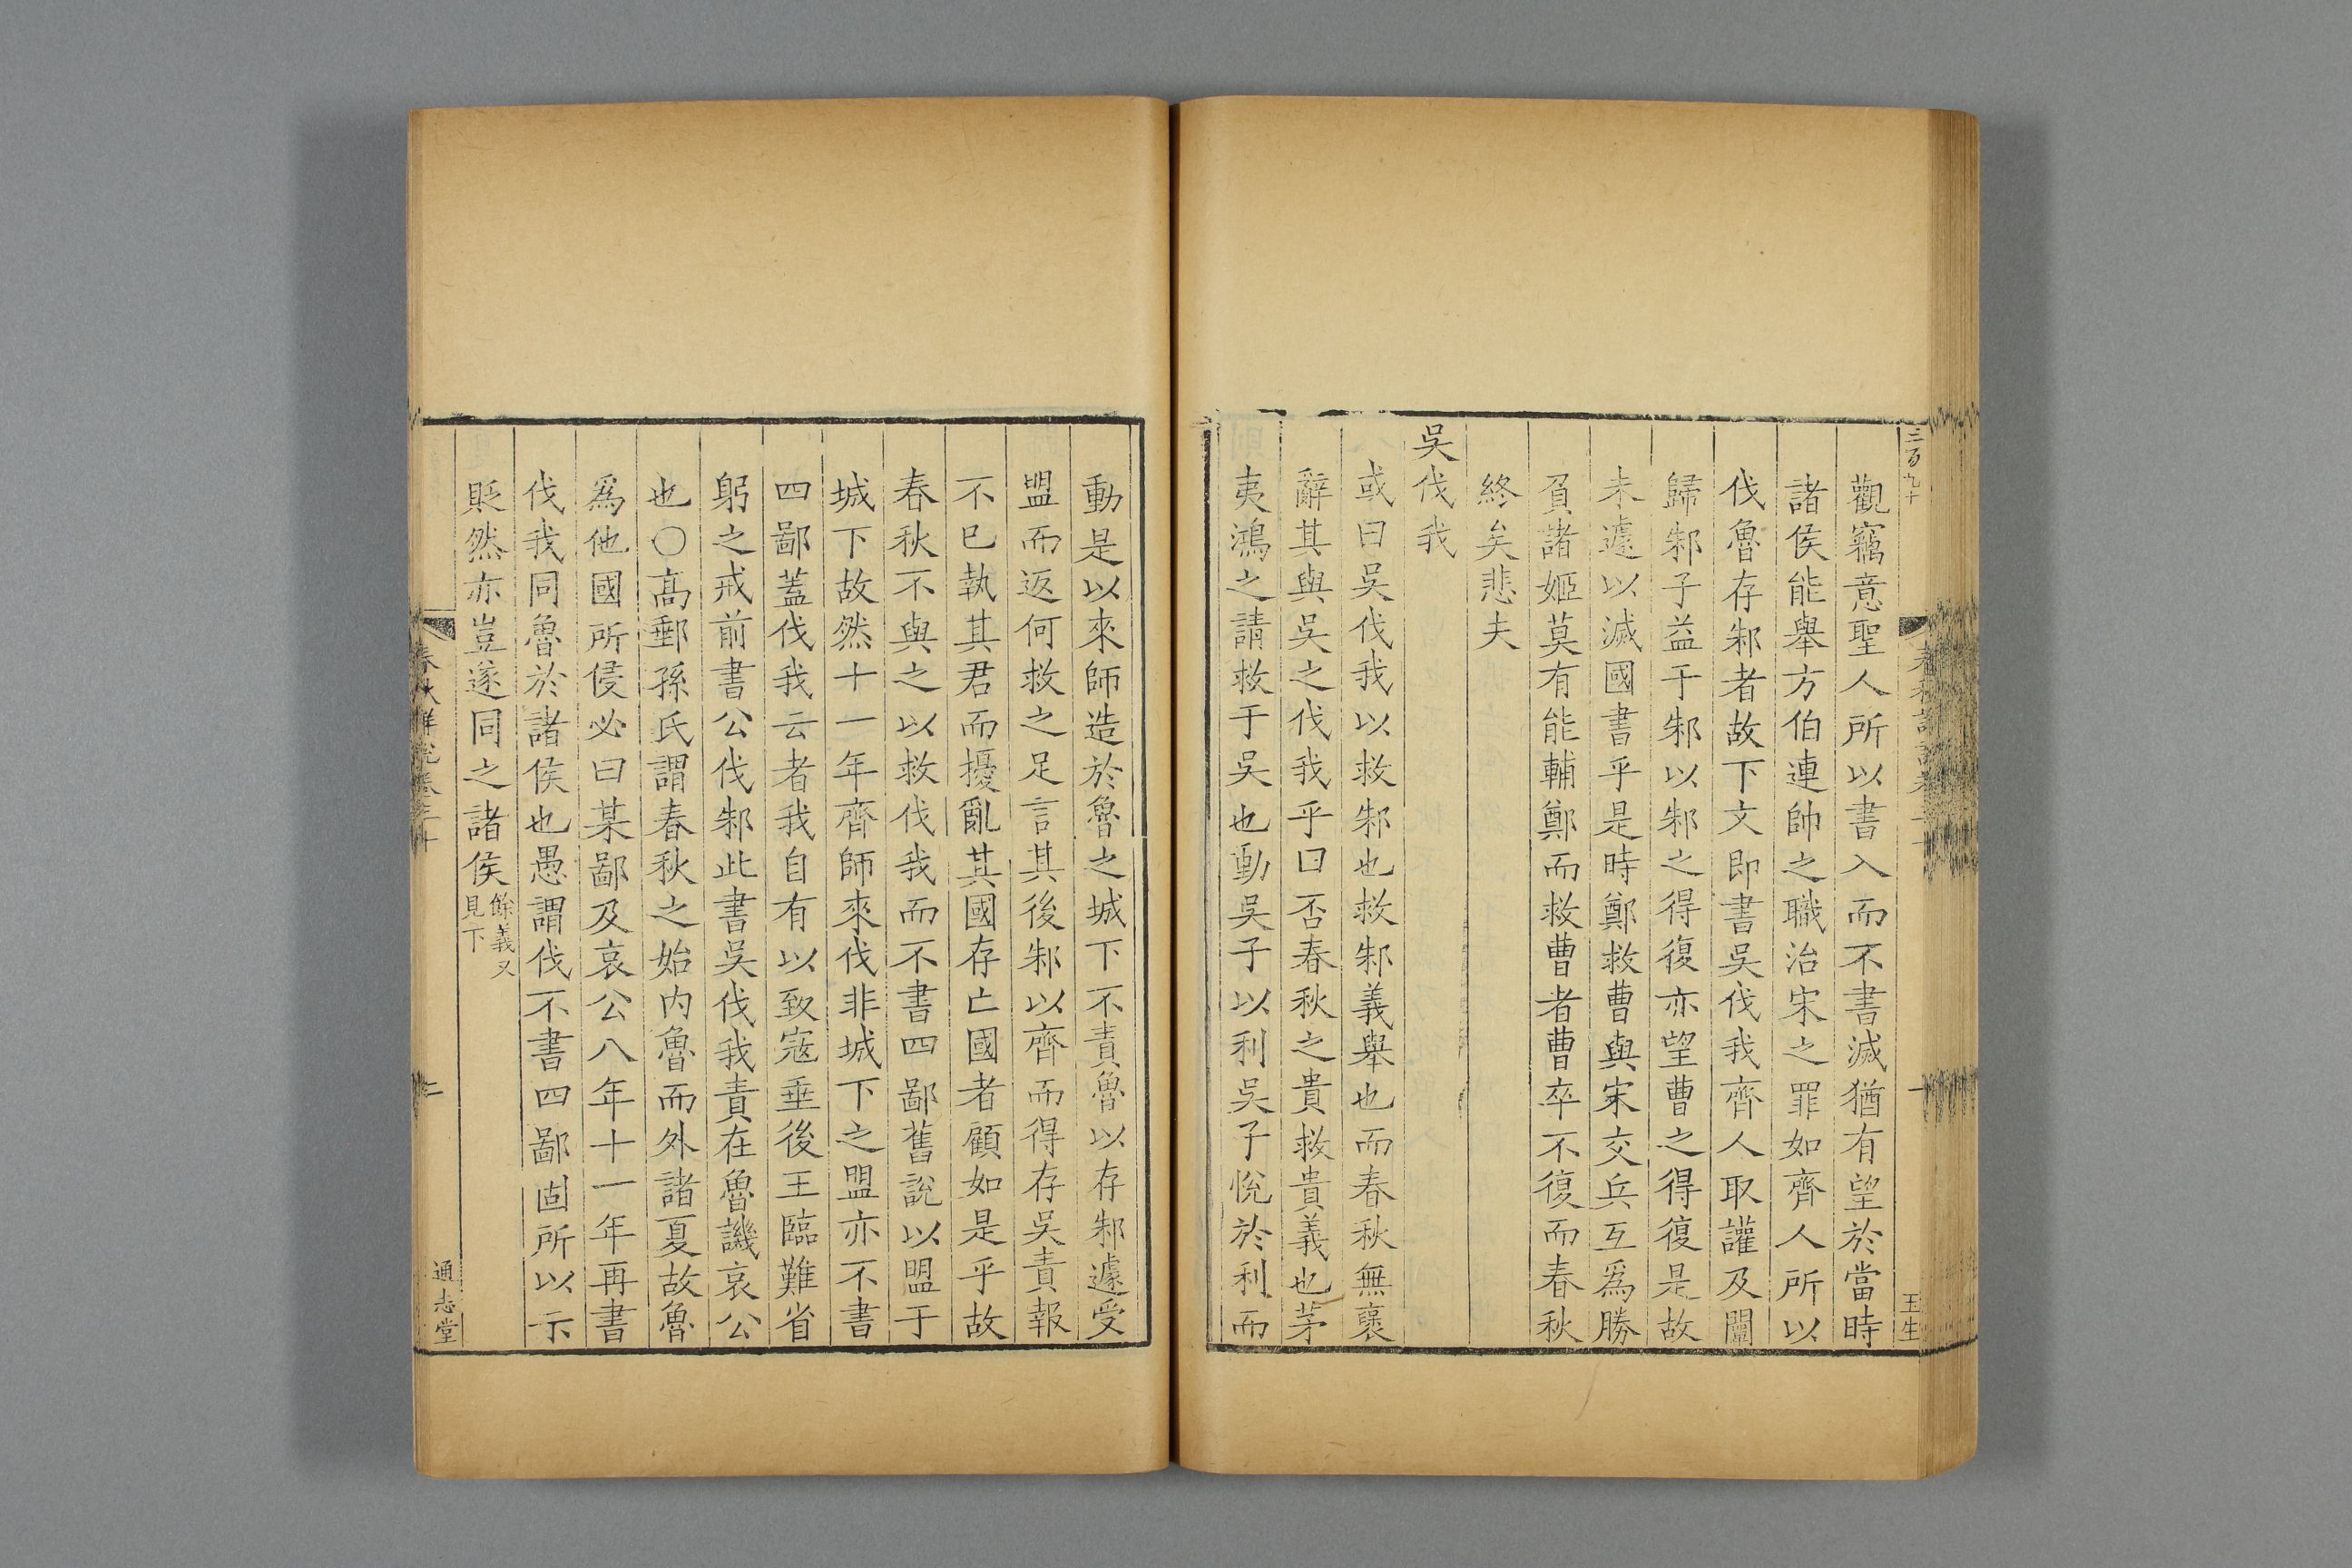 三百九十
觀竊意聖人所以書入而不書滅猶有望於當時
諸侯能舉方伯連帥之職治宋之罪如齊人所以
伐魯存邾者故下文即書吳伐我齊人取讙及闡
歸邾子益于邾以邾之得復亦望曹之得復是故
未遽以滅國書乎是時鄭救曹與宋交兵互爲勝
負諸姬莫有能輔鄭而救曹者曹卒不復而春秋
終矣悲夫
吳伐我
或曰吳伐我以救邾也救邾義舉也而春秋無襃
辭其與吳之伐我乎曰否春秋之貴救貴義也茅
夷鴻之請救于吳也動吳子以利吳子悅於利而
玉生
動是以來師造於魯之城下不責魯以存邾遽受
盟而返何救之足言其後邾以齊而得存吳責報
不已執其君而擾亂其國存亡國者顧如是乎故
春秋不與之以救伐我而不書四鄙舊說以盟于
城下故然十一年齊師來伐非城下之盟亦不書
四鄙蓋伐我云者我自有以致寇垂後王臨難省
躬之戒前書公伐邾此書吳伐我責在魯譏哀公
也○高郵孫氏謂春秋之始内魯而外諸夏故魯
爲他國所侵必曰某鄙及哀公八年十一年再書
伐我同魯於諸侯也愚謂伐不書四鄙固所以示
貶然亦豈遂同之諸侯餘義又見下
二
通志堂